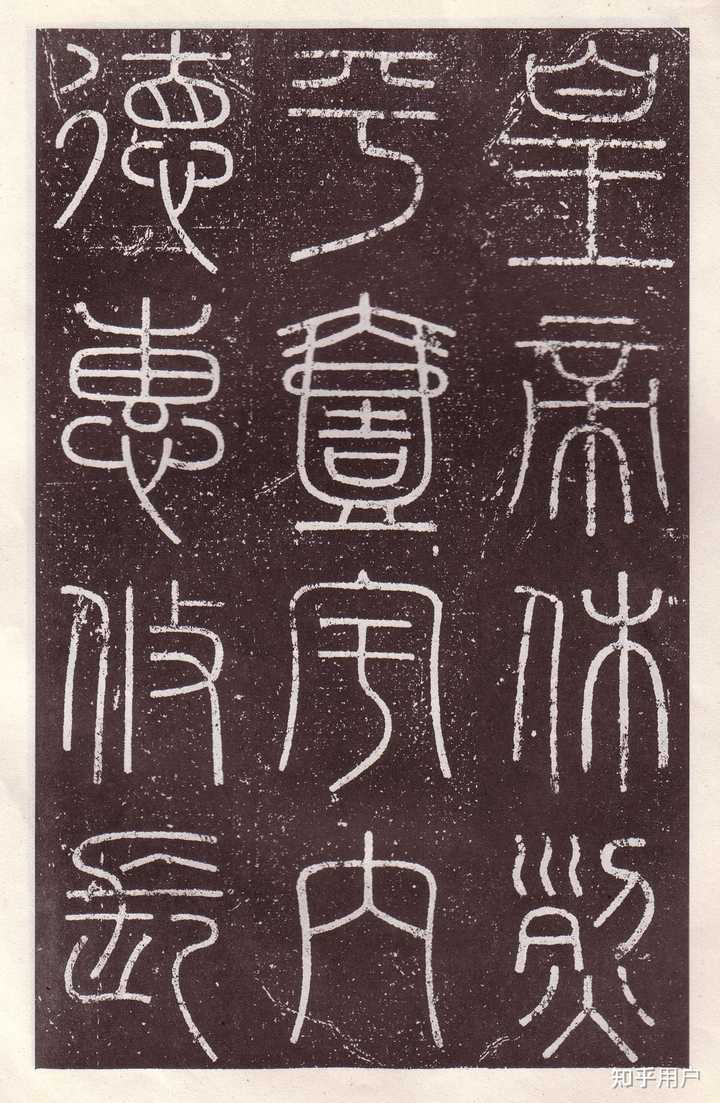 皇帝休烈
平壹宇内
德惠攸長
知乎用户